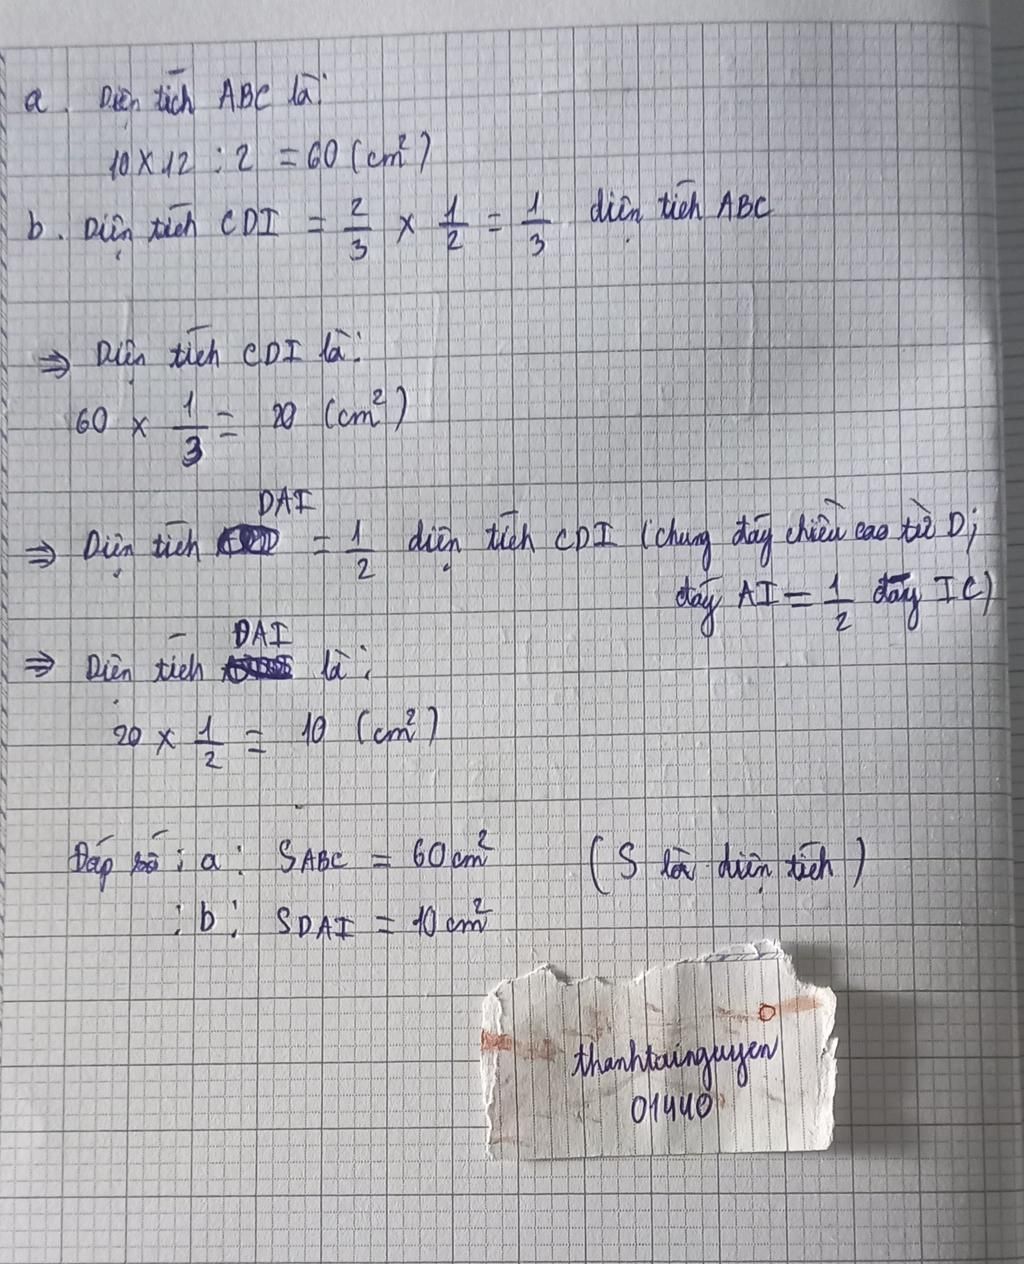 a. Diện tích ABC là:
10 x 12 : 2 = 60 (cm²)
b. Diện tích CDI = 2/3 x 1/2 = 1/3 diện tích ABC
⇒ Diện tích CDI là:
60 x 1/3 = 20 (cm²)
⇒ Diện tích DAI = 1/2 diện tích CDI (chung đáy chiều cao từ D;
đáy AI = 1/2 đáy IC)
⇒ Diện tích DAI là:
20 x 1/2 = 10 (cm²)
Đáp số: a: SABC = 60 cm² (S là diện tích)
: b: SDAI = 10 cm²
thanhtainguyen
01440